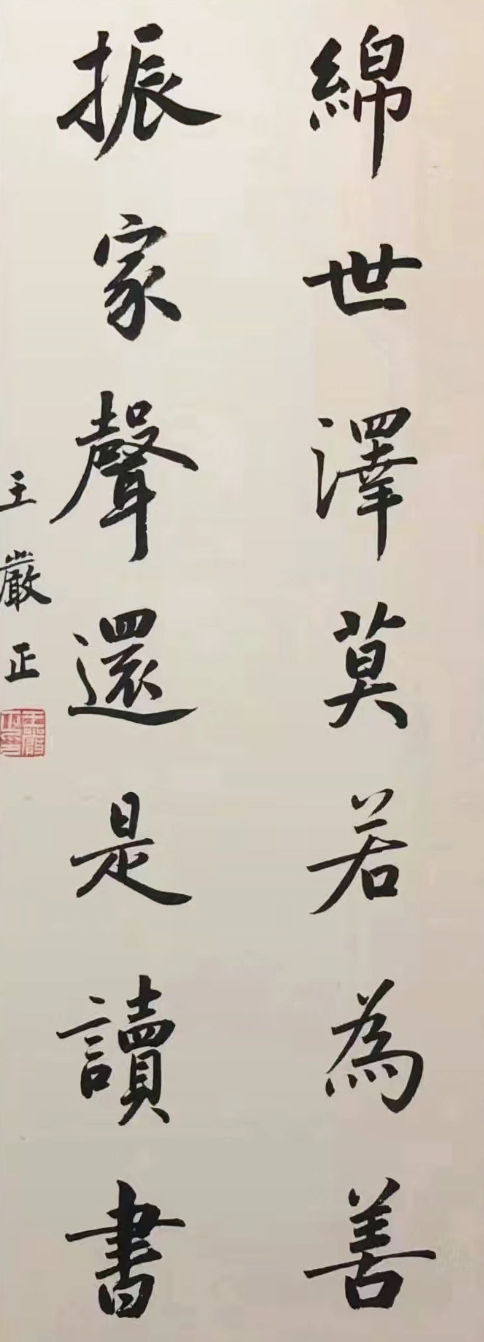 綿世澤莫若為善
振家聲還是讀書
王嚴正